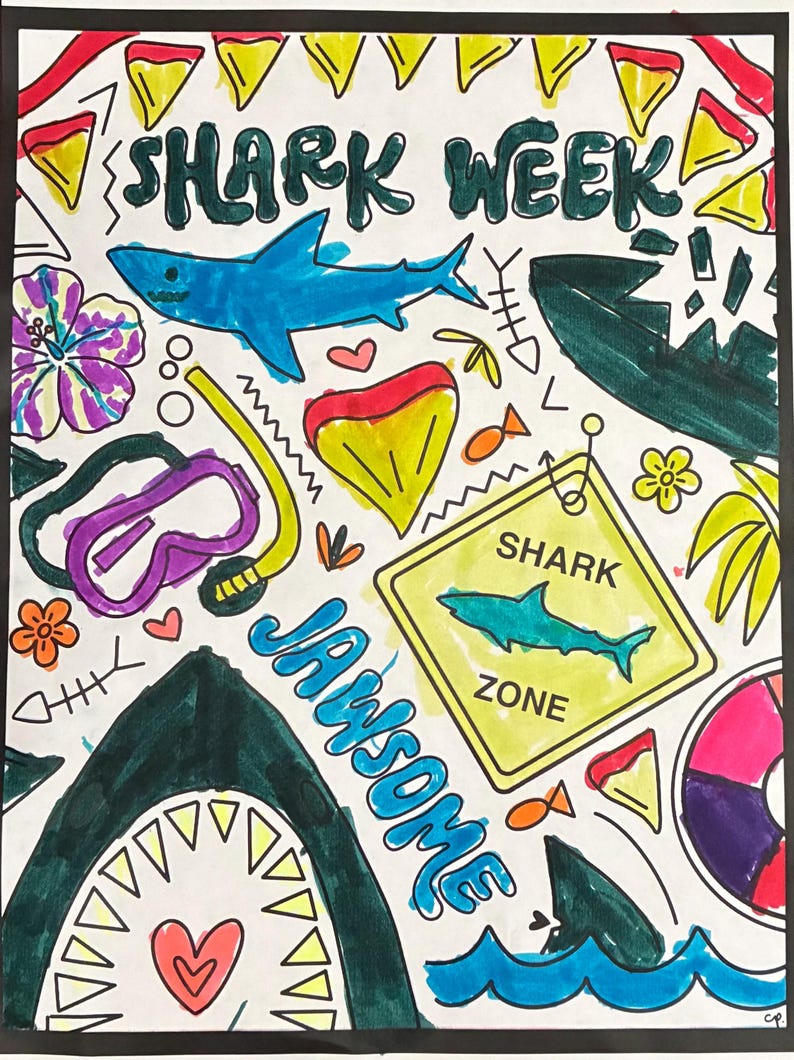 SHARK WEEK
SHARK
ZONE
JAWSOME
CP.